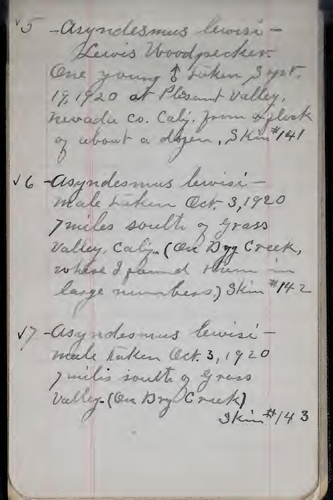 √5 - Asyndesmus lewisi -
Lewis Woodpecker.
One young ♂ taken Sept.
19, 1920 at Plesant Valley,
Nevada Co. Calif. from a flock
of about a dozen, Skin #141
√6 - Asyndesmus lewisi -
Male taken Oct. 3, 1920
7 miles south of Grass
Valley, Calif. (On Dry Creek,
where I found them in
large numbers.) Skin #142
√7 - Asyndesmus lewisi -
Male taken Oct. 3, 1920
7 miles south of Grass
Valley. (On Dry Creek)
Skin #143